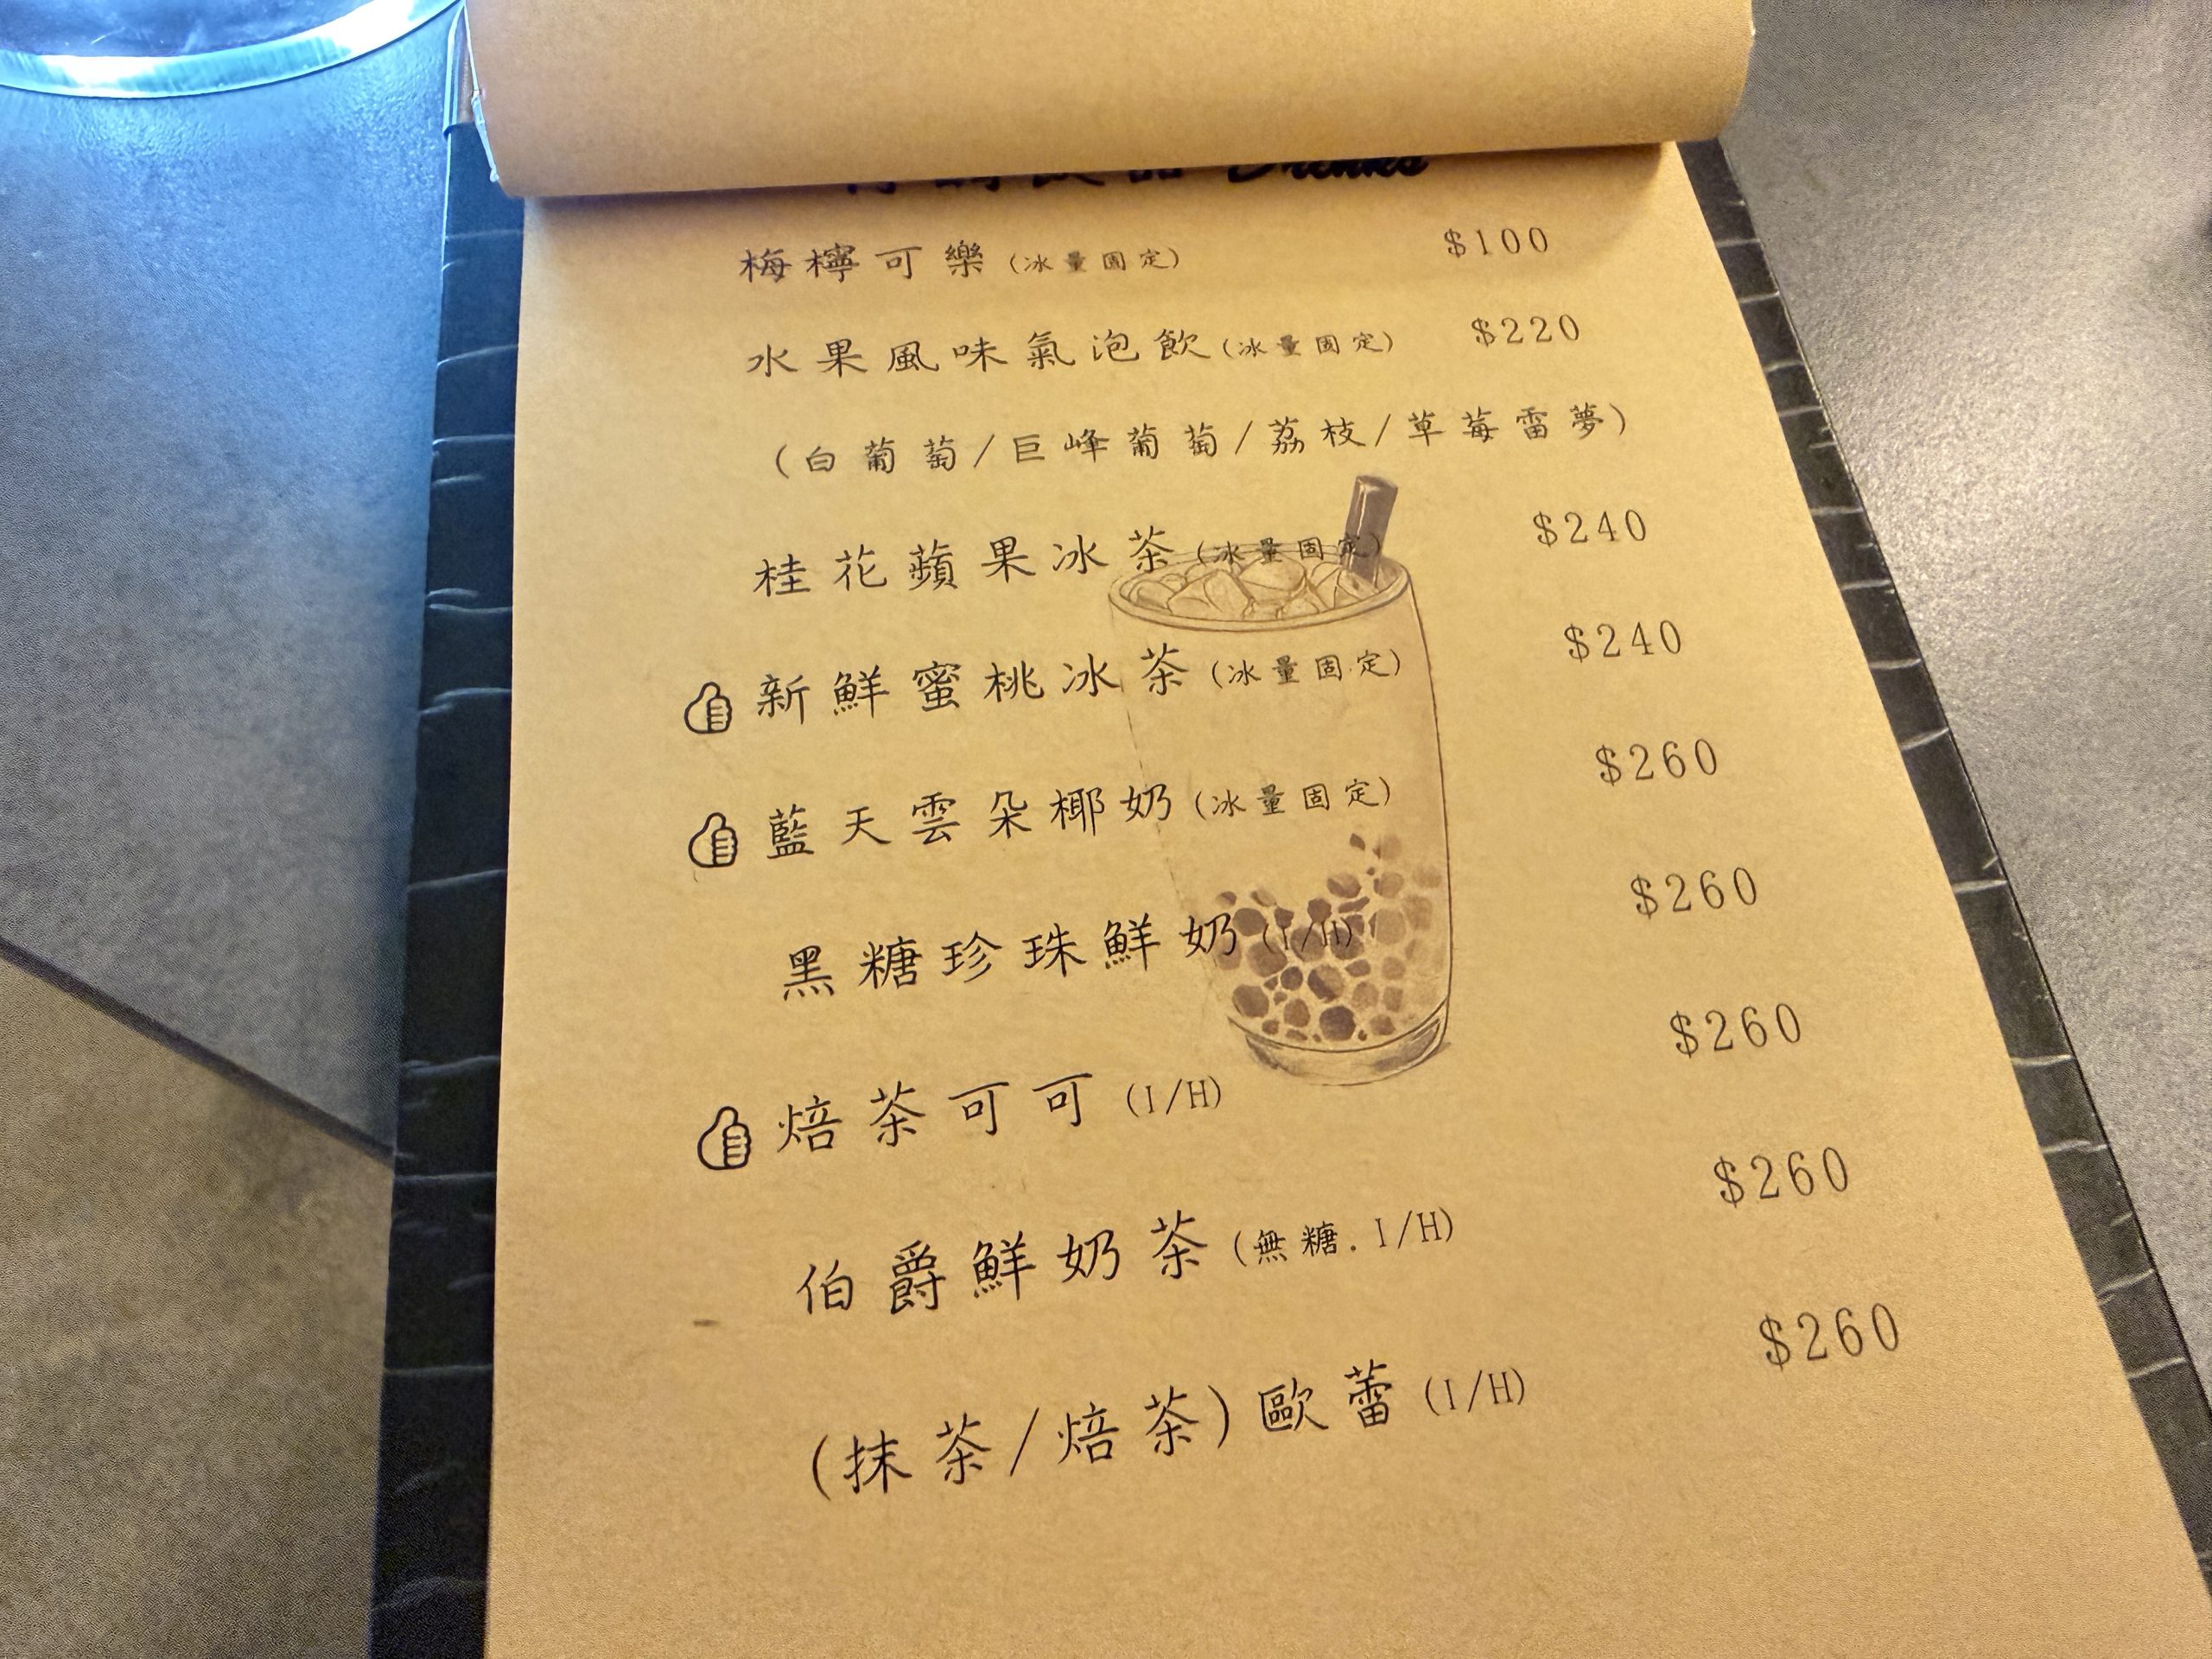 特調飲品 Drinks
梅檸可樂 (冰量固定) $100
水果風味氣泡飲 (冰量固定) $220
(白葡萄/巨峰葡萄/荔枝/草莓雷夢)
桂花蘋果冰茶 (冰量固定) $240
新鮮蜜桃冰茶 (冰量固定) $240
藍天雲朵椰奶 (冰量固定) $260
黑糖珍珠鮮奶 (I/H) $260
焙茶可可 (I/H) $260
伯爵鮮奶茶 (無糖.I/H) $260
(抹茶/焙茶)歐蕾 (I/H) $260